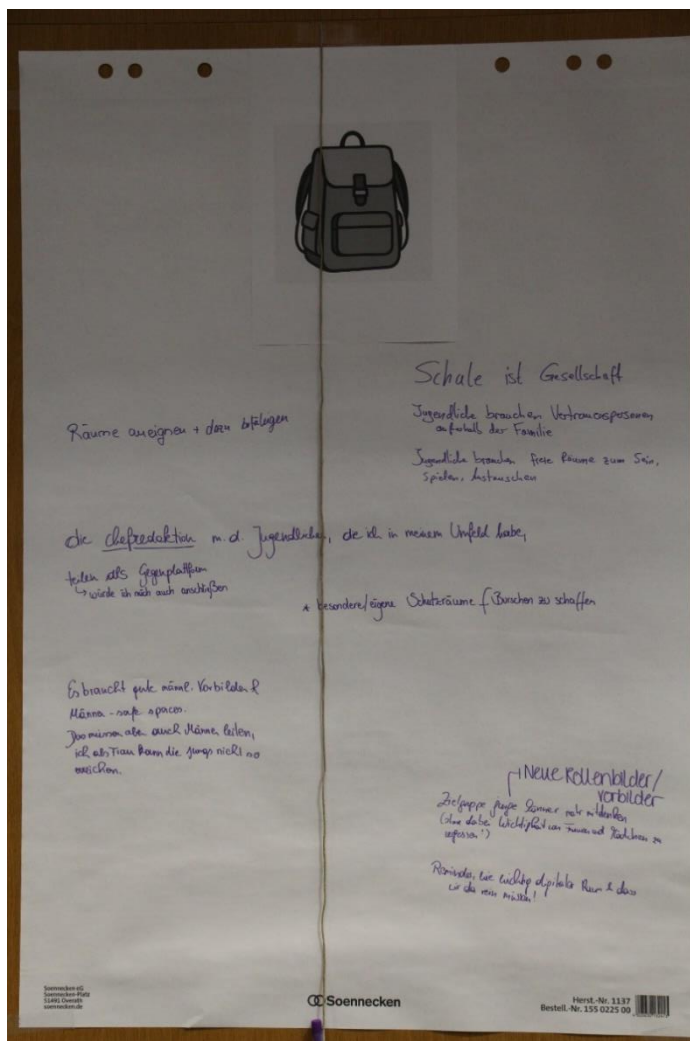 Schule ist Gesellschaft
Jugendliche brauchen Vertrauenspersonen
außerhalb der Familie
Jugendliche brauchen freie Räume zum Sein,
Spielen, Austauschen
Räume aneignen + dazu befähigen
die Chefredaktion m. d. Jugendlichen, die ich in meinem Umfeld habe,
teilen als Gegenplattform
↳ würde ich mich auch anschließen
* besondere/eigene Schutzräume f Burschen zu schaffen
Es braucht gute männl. Vorbilder &
Männer - safe spaces.
Das müssen aber auch Männer leiten,
ich als Frau kann die Jungs nicht so
erreichen.
Neue Rollenbilder/
Vorbilder
Zielgruppe junge Männer mehr mitdenken
(ohne dabei Wichtigkeit von Frauen und Mädchen zu
vergessen!)
Reminder, wie wichtig digitaler Raum & dass
wir da rein müssen!
Soennecken eG
Soennecken-Platz
51491 Overath
soennecken.de
Soennecken
Herst.-Nr. 1137
Bestell.-Nr. 155 0225 00